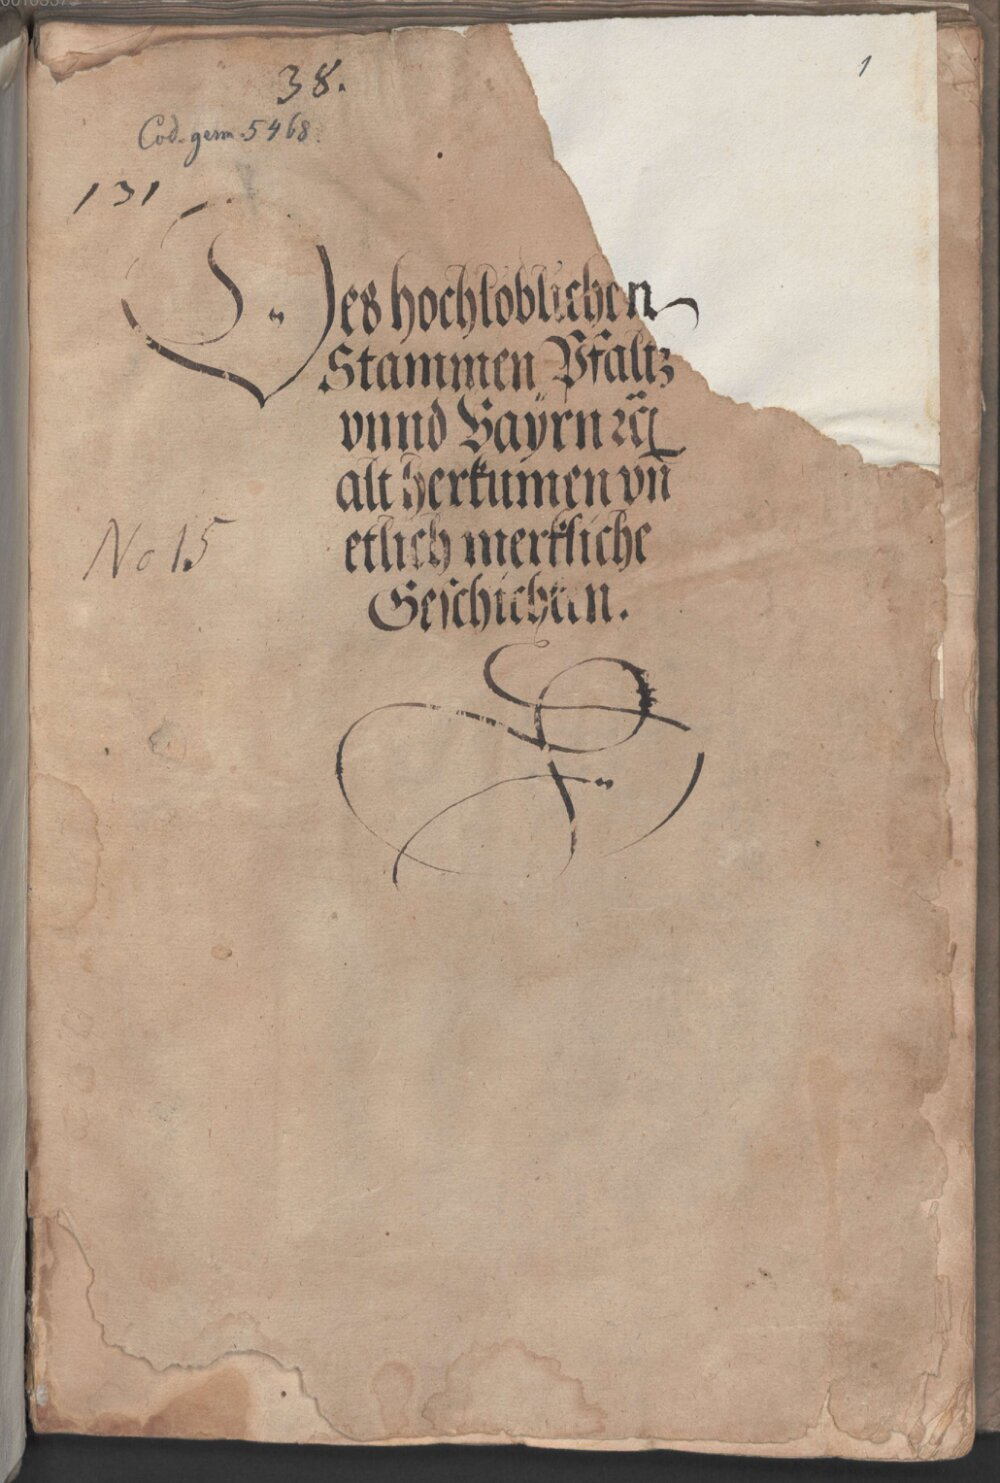 38.
1
Cod. germ. 5468.
131
Des hochloblichen
Stammen Pfaltz
vnnd Bayrn ꝛc̃
alt herkumen vn̄
etlich merkliche
Geschichten.
No 15